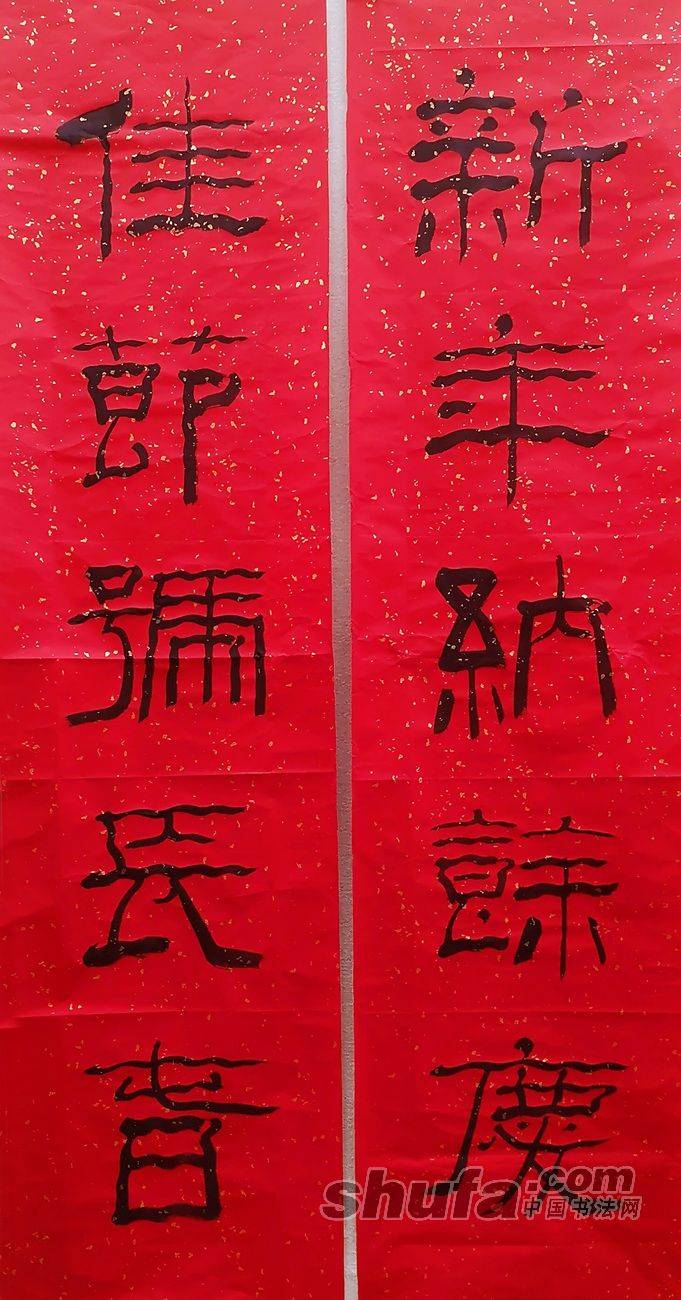 新年納餘慶
佳節號長春
shufa.com
中国书法网